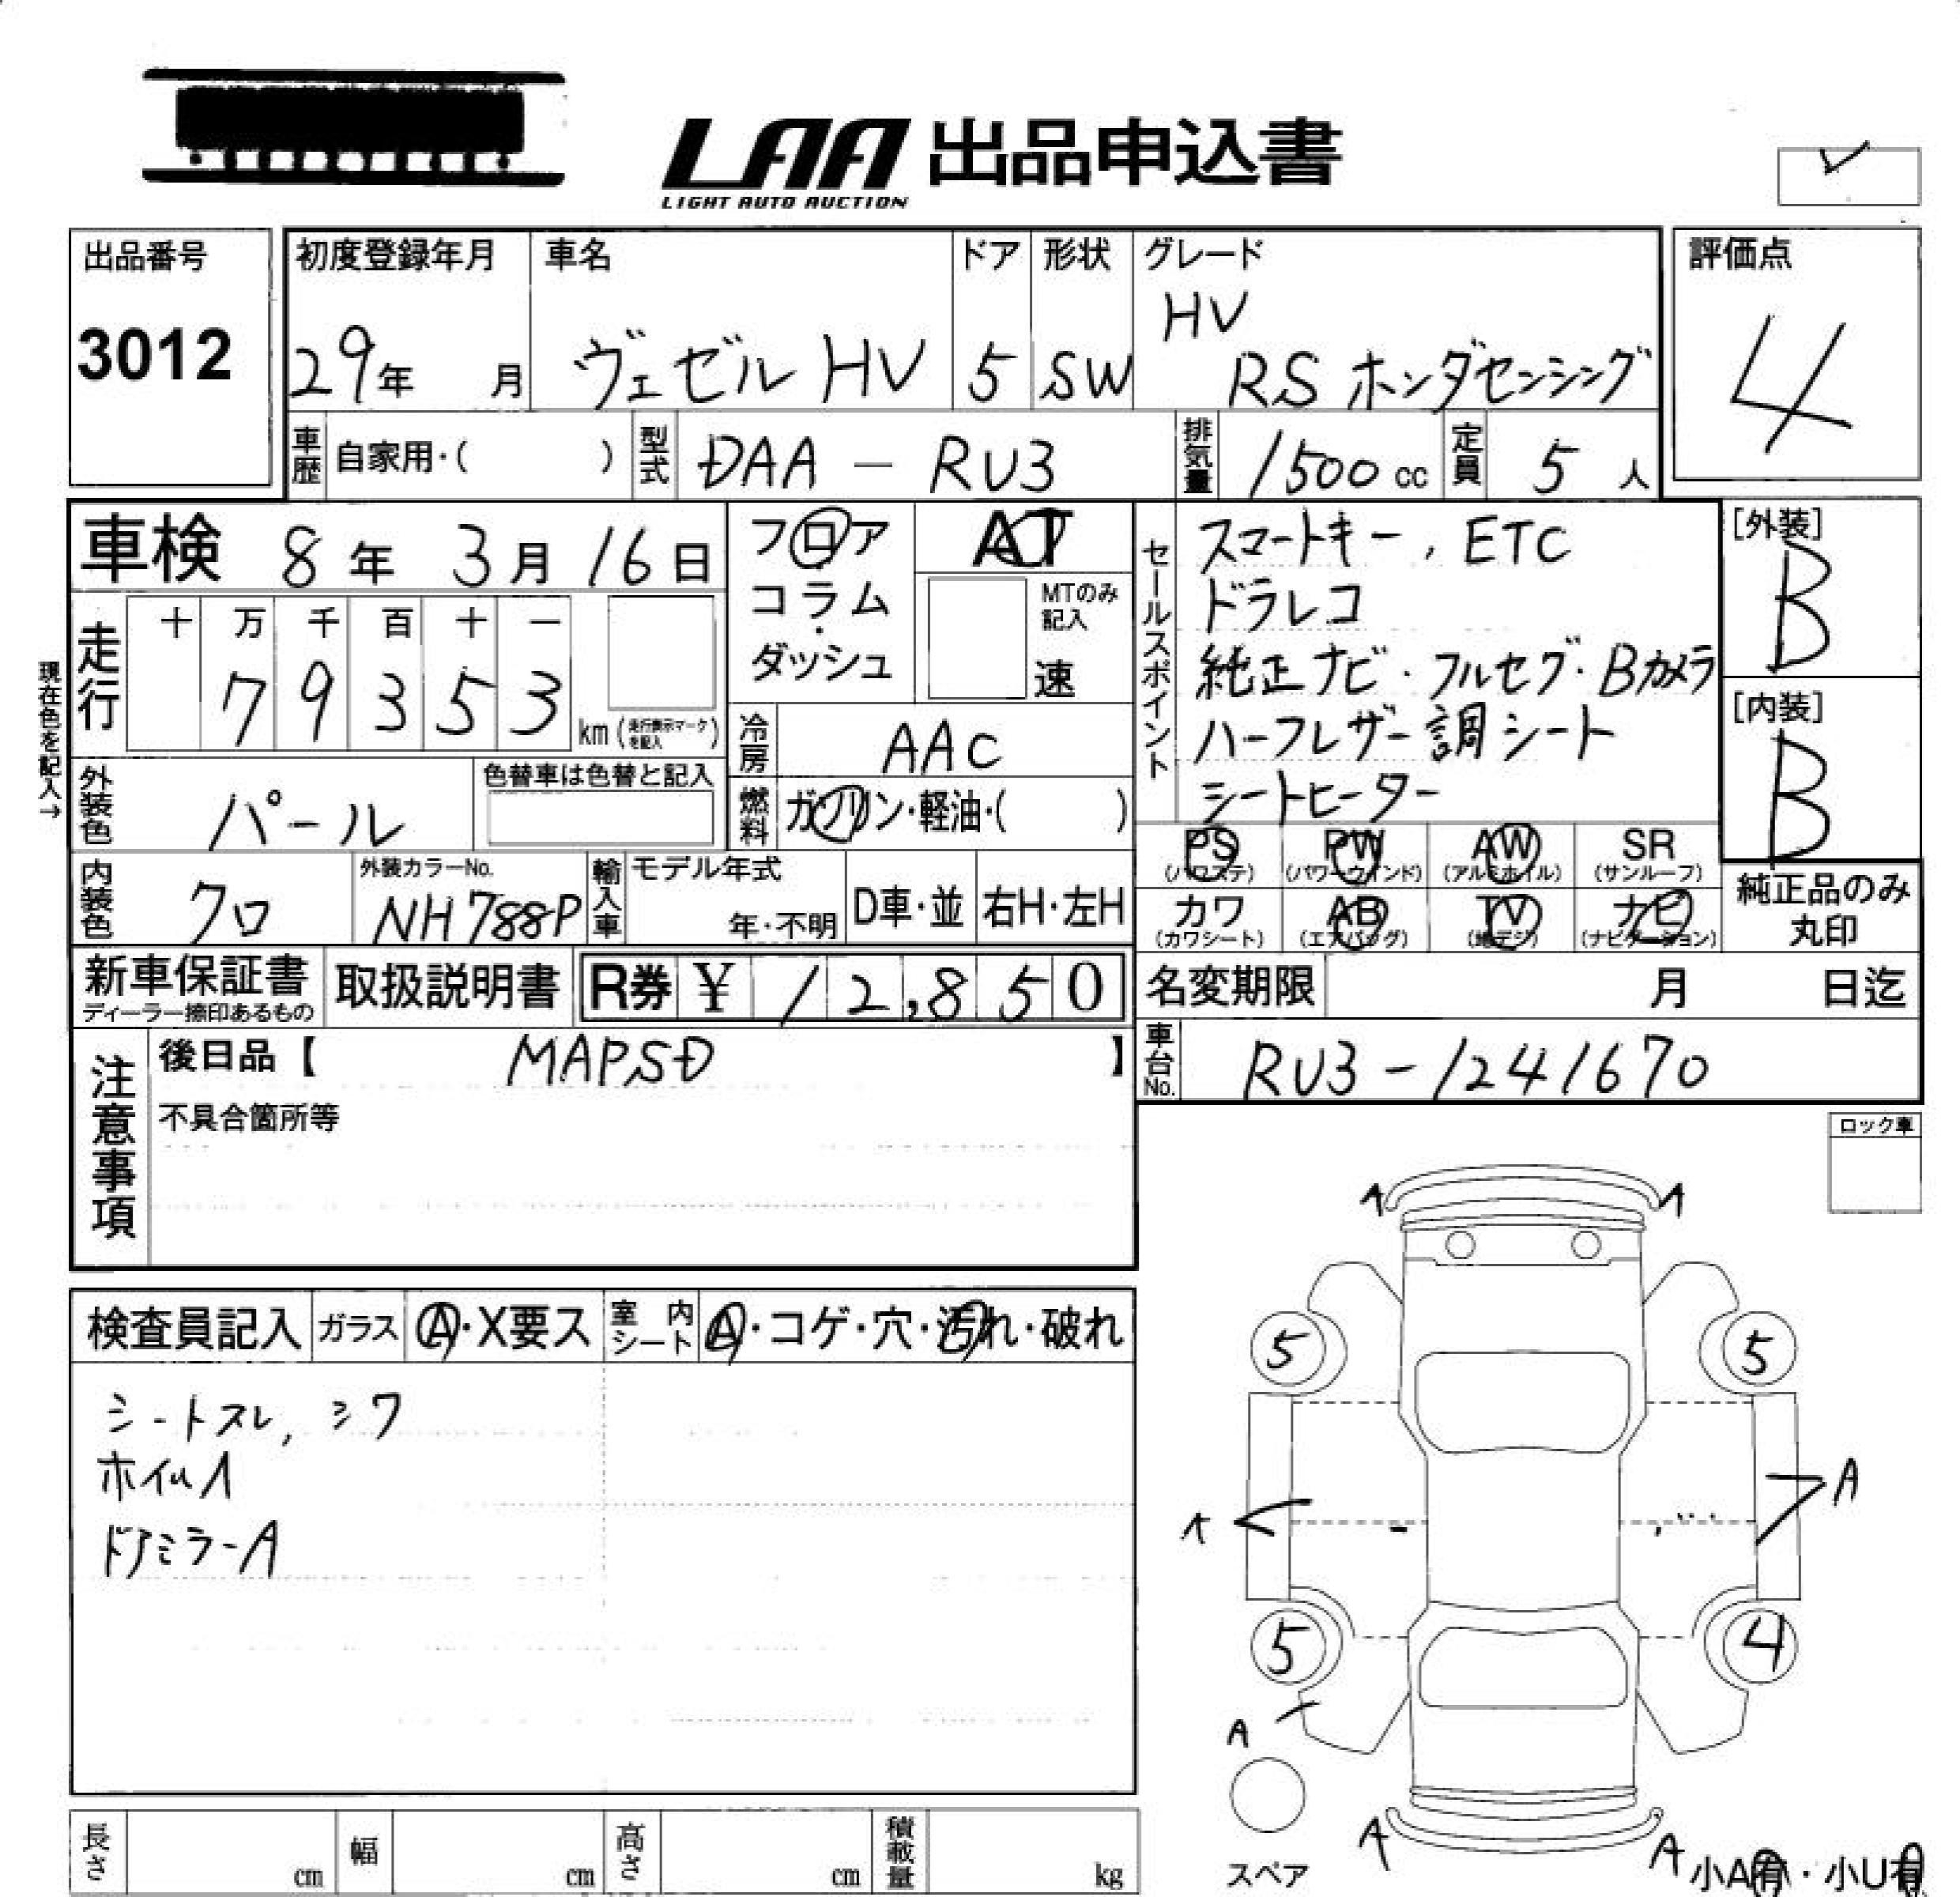 LAA 出品申込書
LIGHT AUTO AUCTION
出品番号
3012
初度登録年月
29年 月
車名
ヴェゼル HV
ドア
5
形状
SW
グレード
HV
RS ホンダセンシング
評価点
4
車歴 自家用・( )
型式 DAA - RU3
排気量 1500 cc
定員 5 人
車検 8年 3月 16日
フロア
コラム
・
ダッシュ
AT
MTのみ
記入
速
セールスポイント
スマートキー, ETC
ドラレコ
純正ナビ・フルセグ・Bカメラ
ハーフレザー調シート
シートヒーター
[外装]
B
[内装]
B
現在色を記入→
走行
十 万 千 百 十 一
7 9 3 5 3
km (走行表示マークを記入)
冷房 AAC
外装色 パール
色替車は色替と記入
燃料 ガソリン・軽油・( )
内装色 クロ
外装カラーNo.
NH788P
輸入車
モデル年式
年・不明
D車・並
右H・左H
PS (パワステ)
PW (パワーウインド)
AW (アルミホイル)
SR (サンルーフ)
カワ (カワシート)
AB (エアバッグ)
TV (地デジ)
ナビ (ナビゲーション)
純正品のみ
丸印
新車保証書
ディーラー捺印あるもの
取扱説明書
R券 ¥ 12,850
名変期限 月 日迄
車台No. RU3-1241670
注意事項
後日品【 MAPSD 】
不具合箇所等
ロック車
検査員記入
ガラス A・X要ス
室内シート A・コゲ・穴・汚れ・破れ
シートスレ, シワ
ホイルA
ドアミラーA
A A
5 5
A A
5 4
A
A A
スペア
小A有・小U有
長さ cm
幅 cm
高さ cm
積載量 kg